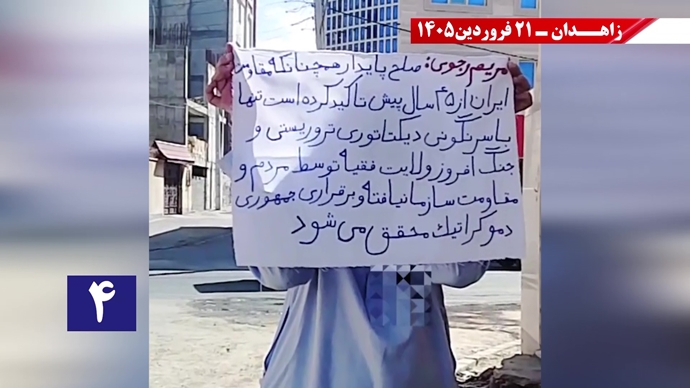 زاهدان ـ ۲۱ فروردین ۱۴۰۵
مریم رجوی: صلح پایدار همچنانکه مقاومت
ایران از ۴۵ سال پیش تأکید کرده است تنها
با سرنگونی دیکتاتوری تروریستی و
جنگ افروز ولایت فقیه توسط مردم و
مقاومت سازمانیافته و برقراری جمهوری
دموکراتیک محقق می شود
۴